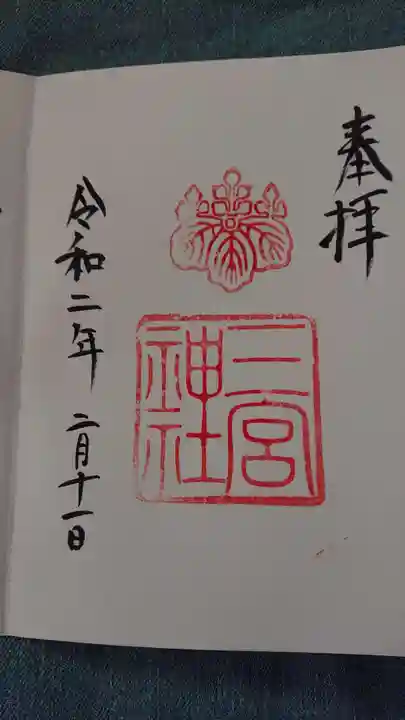 奉拝
三宮
神社
令和二年 二月十一日